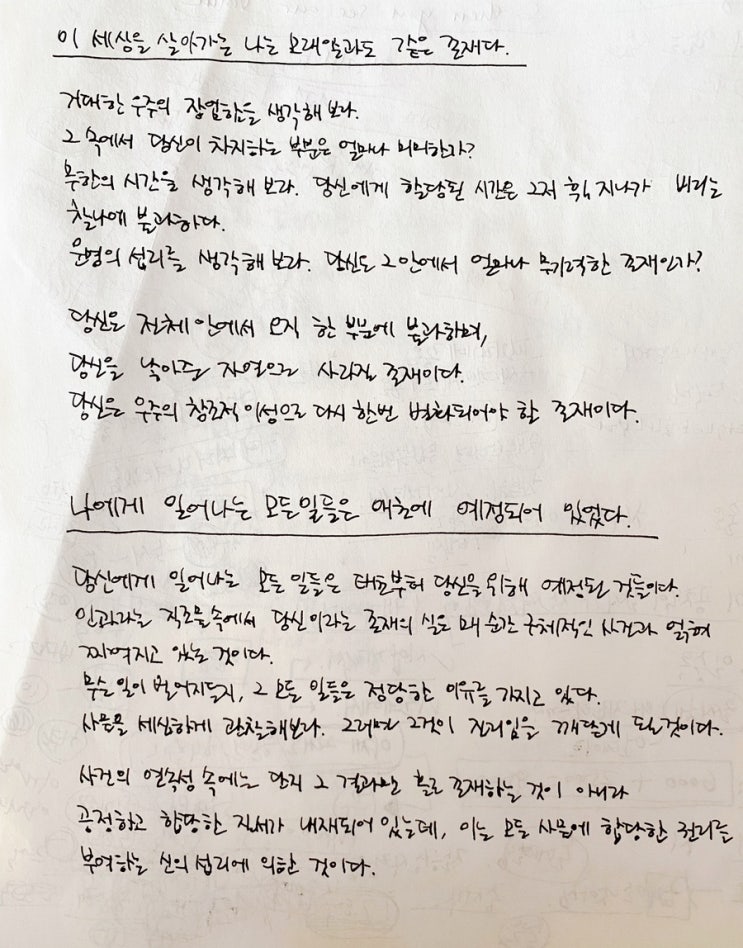 이 세상을 살아가는 나는 모래알과도 같은 존재다.
거대한 우주의 장엄함을 생각해 보라.
그 속에서 당신이 차지하는 부분은 얼마나 미미한가?
무한의 시간을 생각해 보라. 당신에게 할당된 시간은 그저 휙 지나가 버리는
찰나에 불과하다.
운명의 섭리를 생각해 보라. 당신은 그 안에서 얼마나 무기력한 존재인가?
당신은 전체 안에서 오직 한 부분에 불과하며,
당신을 낳아준 자연으로 사라질 존재이다.
당신은 우주의 창조적 이성으로 다시 한번 변화되어야 할 존재이다.
나에게 일어나는 모든 일들은 애초에 예정되어 있었다.
당신에게 일어나는 모든 일들은 태초부터 당신을 위해 예정된 것들이다.
인과라는 직조물 속에서 당신이라는 존재의 실은 매 순간 구체적인 사건과 얽혀
짜여지고 있는 것이다.
무슨 일이 벌어지든지, 그 모든 일들은 정당한 이유를 가지고 있다.
사물을 세심하게 관찰해보라. 그러면 그것이 진리임을 깨닫게 될것이다.
사건의 연속성 속에는 단지 그 결과만 홀로 존재하는 것이 아니라
공정하고 합당한 질서가 내재되어 있는데, 이는 모든 사물에 합당한 권리를
부여하는 신의 섭리에 의한 것이다.